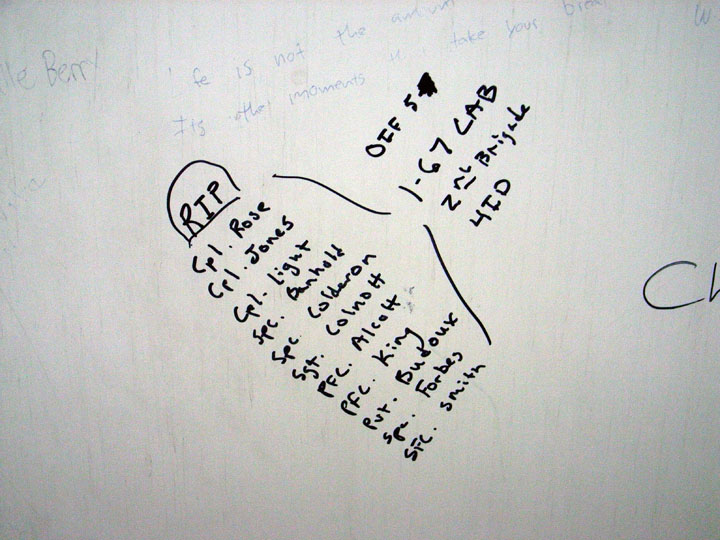 lle Berry
fe is not the amoun
Its the moments that take your brea
W
OIF 5
1-67 CAB
2nd Brigade
4ID
RIP
Cpl. Rose
Cpl. Jones
Cpl. Light
Spc. Banhold
Spc. Calderon
Sgt. Colnott
PFC. Alcott
PFC. King
Pvt. Budoux
Spc. Forbes
SFC. Smith
Ch